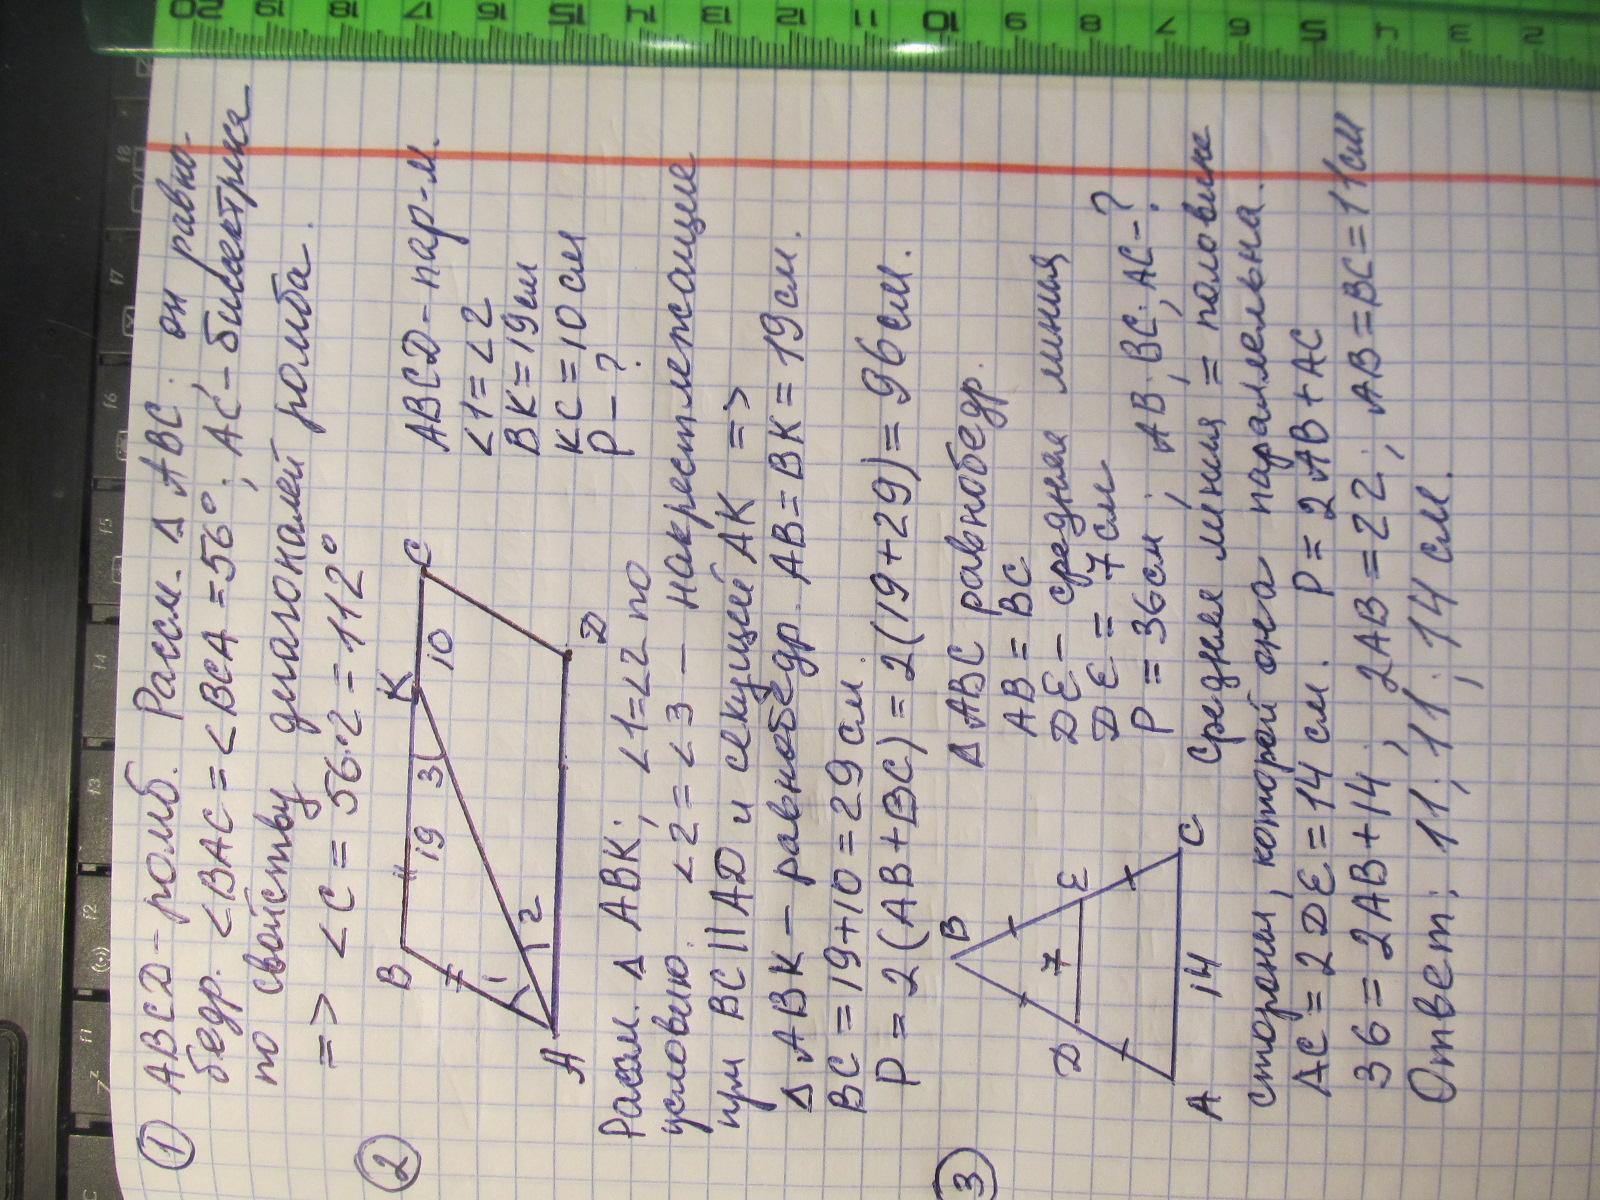 ① ABCD - ромб. Рассм. Δ ABC: он равно-
бедр. <BAC = <BCA = 56°; AC - биссектриса
по свойству диагоналей ромба.
=> <C = 56°·2 = 112°
②
B
K
C
A
D
19
3
10
1
2
ABCD - пар-м.
<1 = <2
BK = 19 см
KC = 10 см
P - ?
Рассм. Δ ABK; <1 = <2 по
условию. <2 = <3 - накрестлежащие
при BC || AD и секущей AK =>
Δ ABK - равнобедр. AB = BK = 19 см.
BC = 19 + 10 = 29 см.
P = 2 (AB + BC) = 2 (19 + 29) = 96 см.
③
B
D
7
E
A
14
C
Δ ABC равнобедр.
AB = BC
DE - средняя линия
DE = 7 см
P = 36 см; AB; BC; AC - ?
Средняя линия = половине
стороны, которой она параллельна.
AC = 2 DE = 14 см. P = 2 AB + AC
36 = 2AB + 14; 2AB = 22; AB = BC = 11 см
Ответ: 11; 11; 14 см.
20 19 18 17 16 15 14 13 12 11 10 9 8 7 6 5 4 3 2
f8
f7
f6
f5
f4
f3
f2
f1